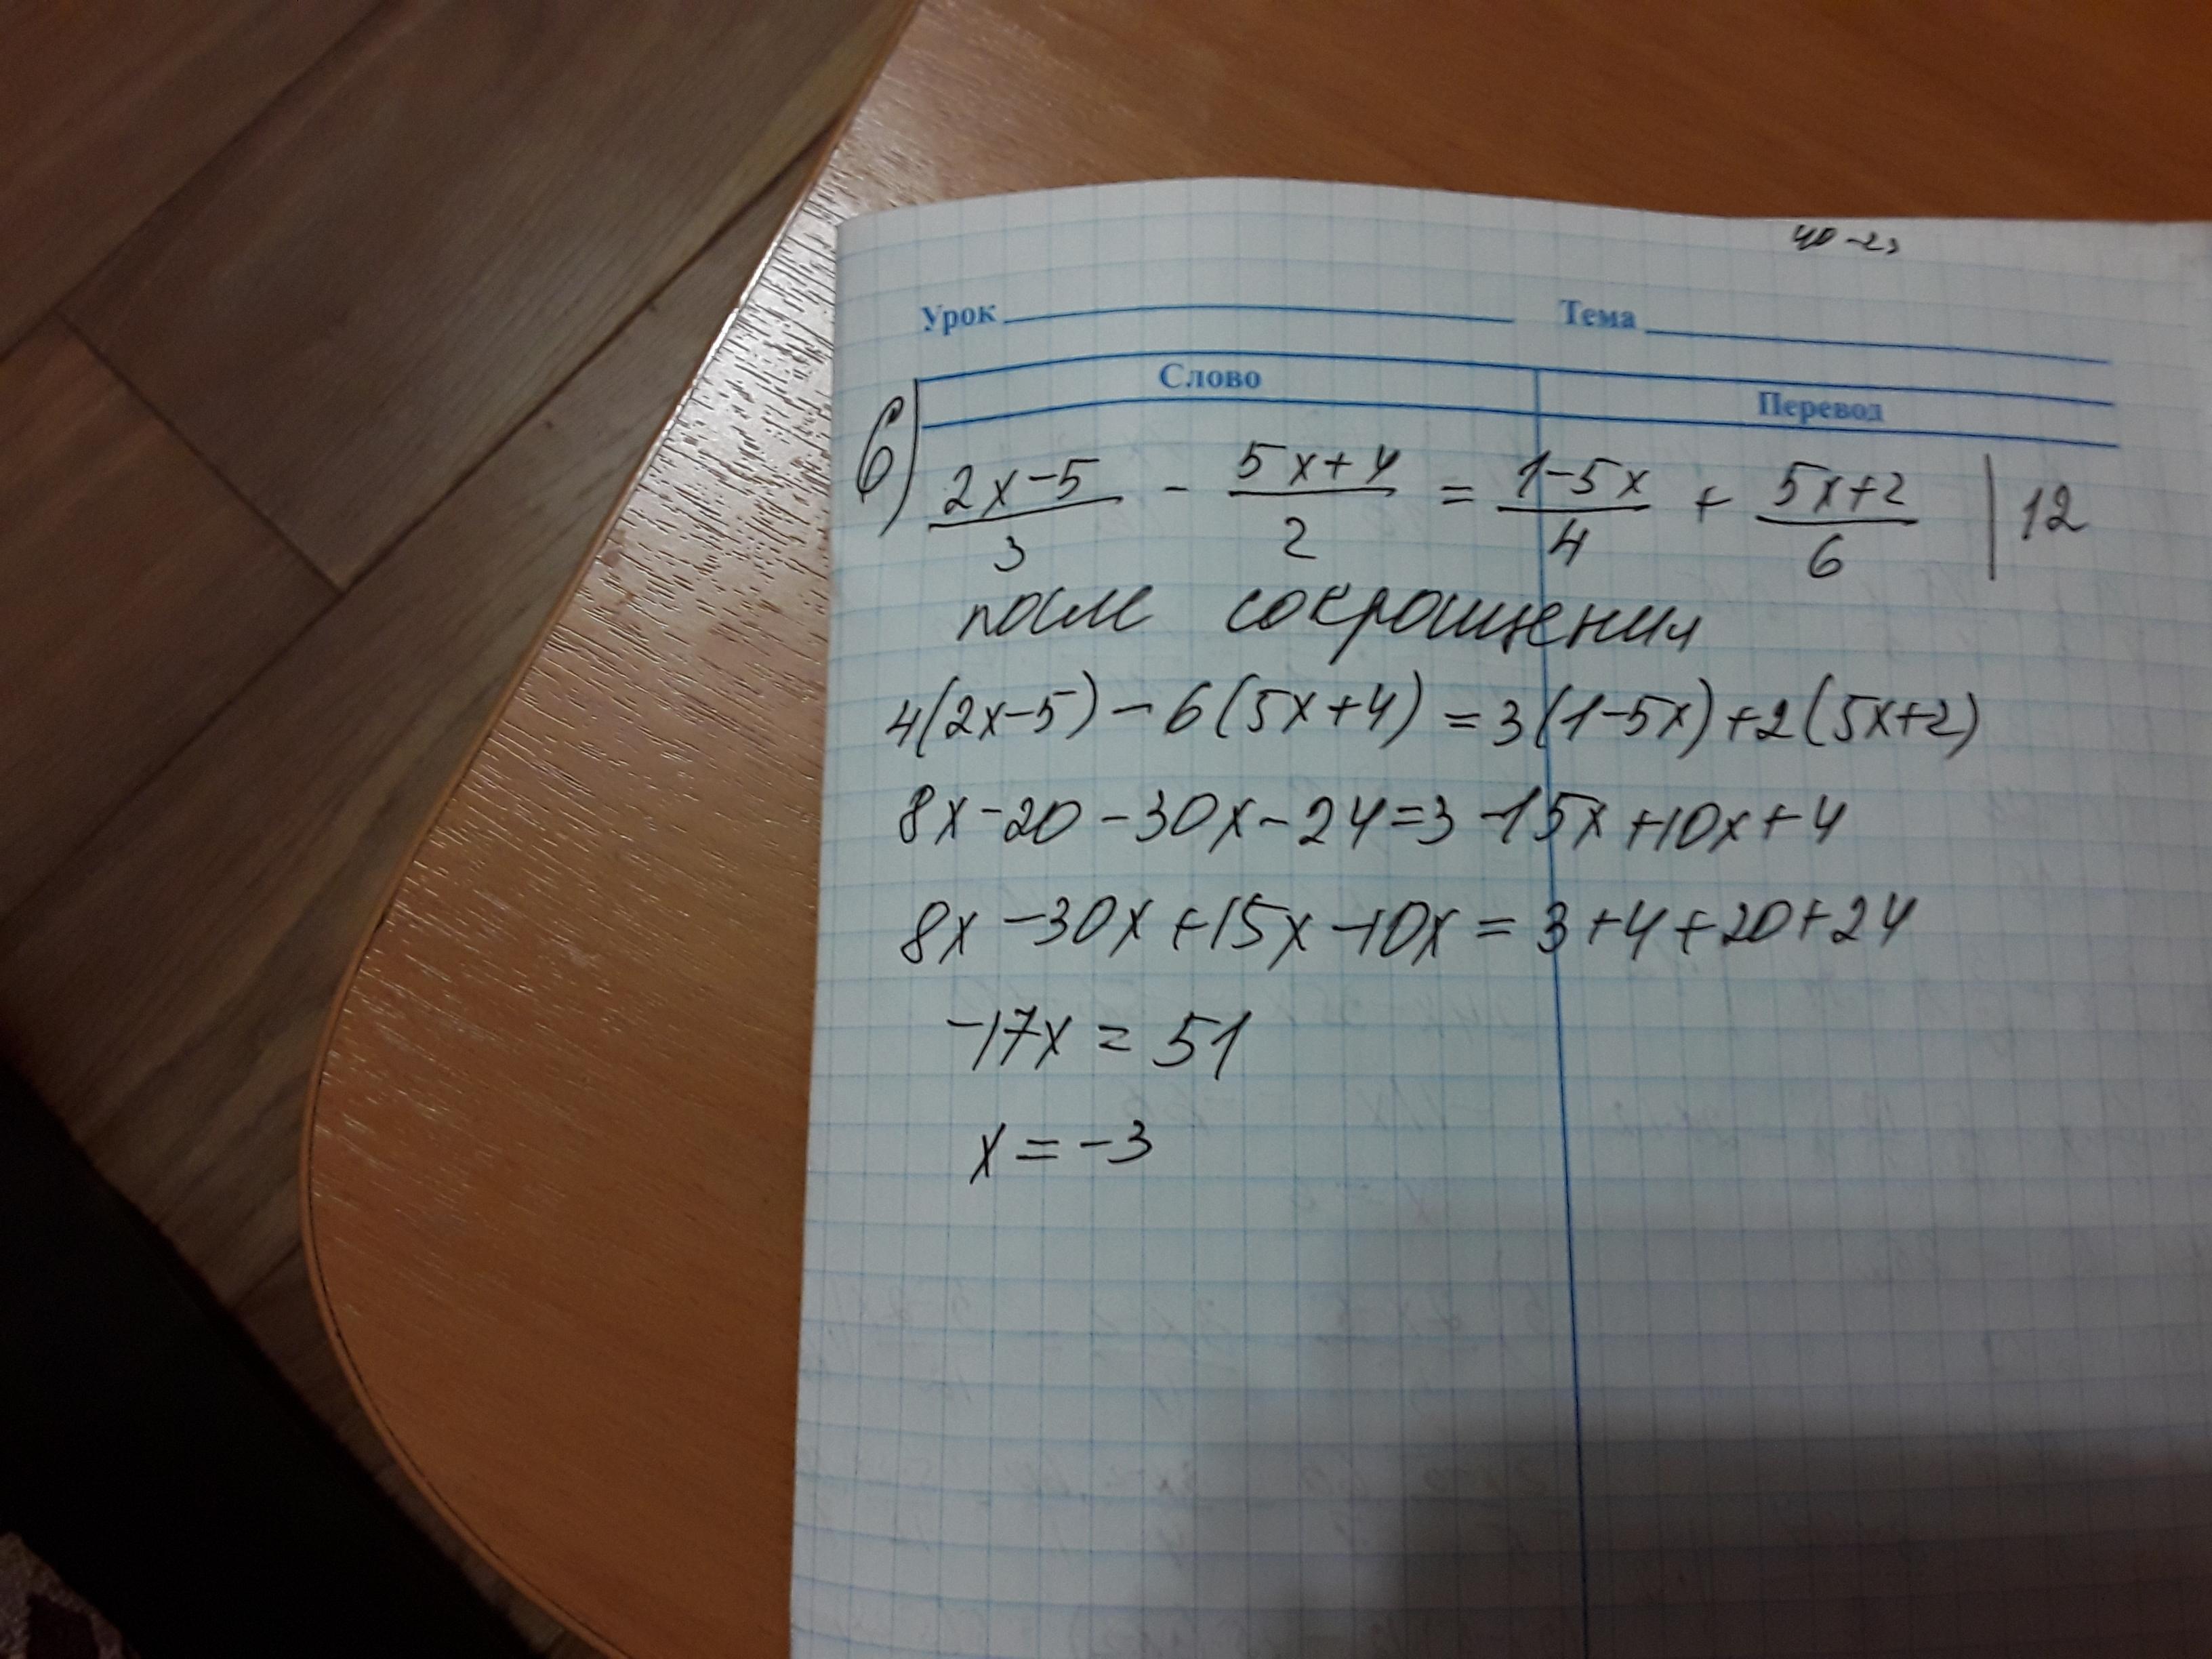 Урок Тема
Слово Перевод
6) (2x-5)/3 - (5x+4)/2 = (1-5x)/4 + (5x+2)/6 | 12
после сокращения
4(2x-5) - 6(5x+4) = 3(1-5x)+2(5x+2)
8x-20-30x-24=3-15x+10x+4
8x-30x+15x-10x = 3+4+20+24
-17x = 51
x = -3